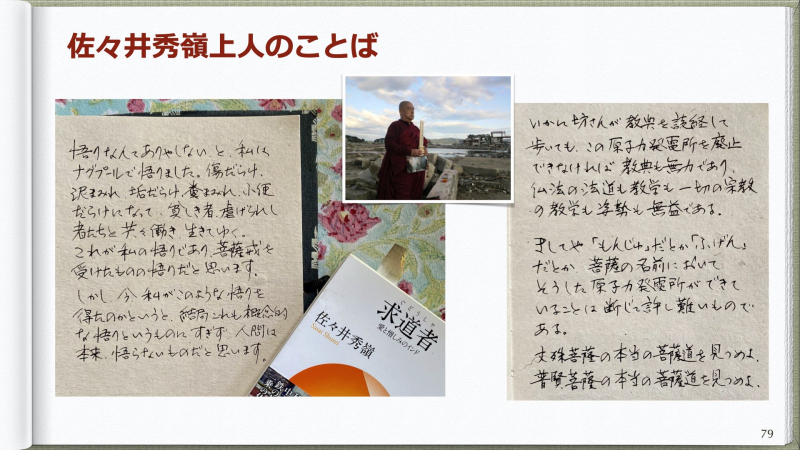 佐々井秀嶺上人のことば
悟りなんてありやしない、と、私は
ナグプールで悟りました。傷だらけ、
泥まみれ、垢だらけ、糞まみれ、小便
だらけになって、貧しき者、虐げられし
者たちと共に働き、生きてゆく。
これが私の悟りであり、菩薩戒を
受けたものの悟りだと思います。
しかし、今、私がこのような悟りを
得たのかというと、結局これも概念的
な悟りというものにすぎず、人間は
本来、悟らないものだと思います。
求道者
愛と憎しみのインド
佐々井秀嶺
Sasai Shurei
いかに坊さんが教典を読経して
歩いても、この原子力発電所を廃止
できなければ教典も無力であり、
仏法の法道も教学も一切の宗教
の教学も姿勢も無益である。
ましてや「もんじゅ」だとか「ふげん」
だとか、菩薩の名前において
そうした原子力発電所ができて
いることは断じて許し難いもので
ある。
文殊菩薩の本当の菩薩道を見つめよ、
普賢菩薩の本当の菩薩道を見つめよ、
79